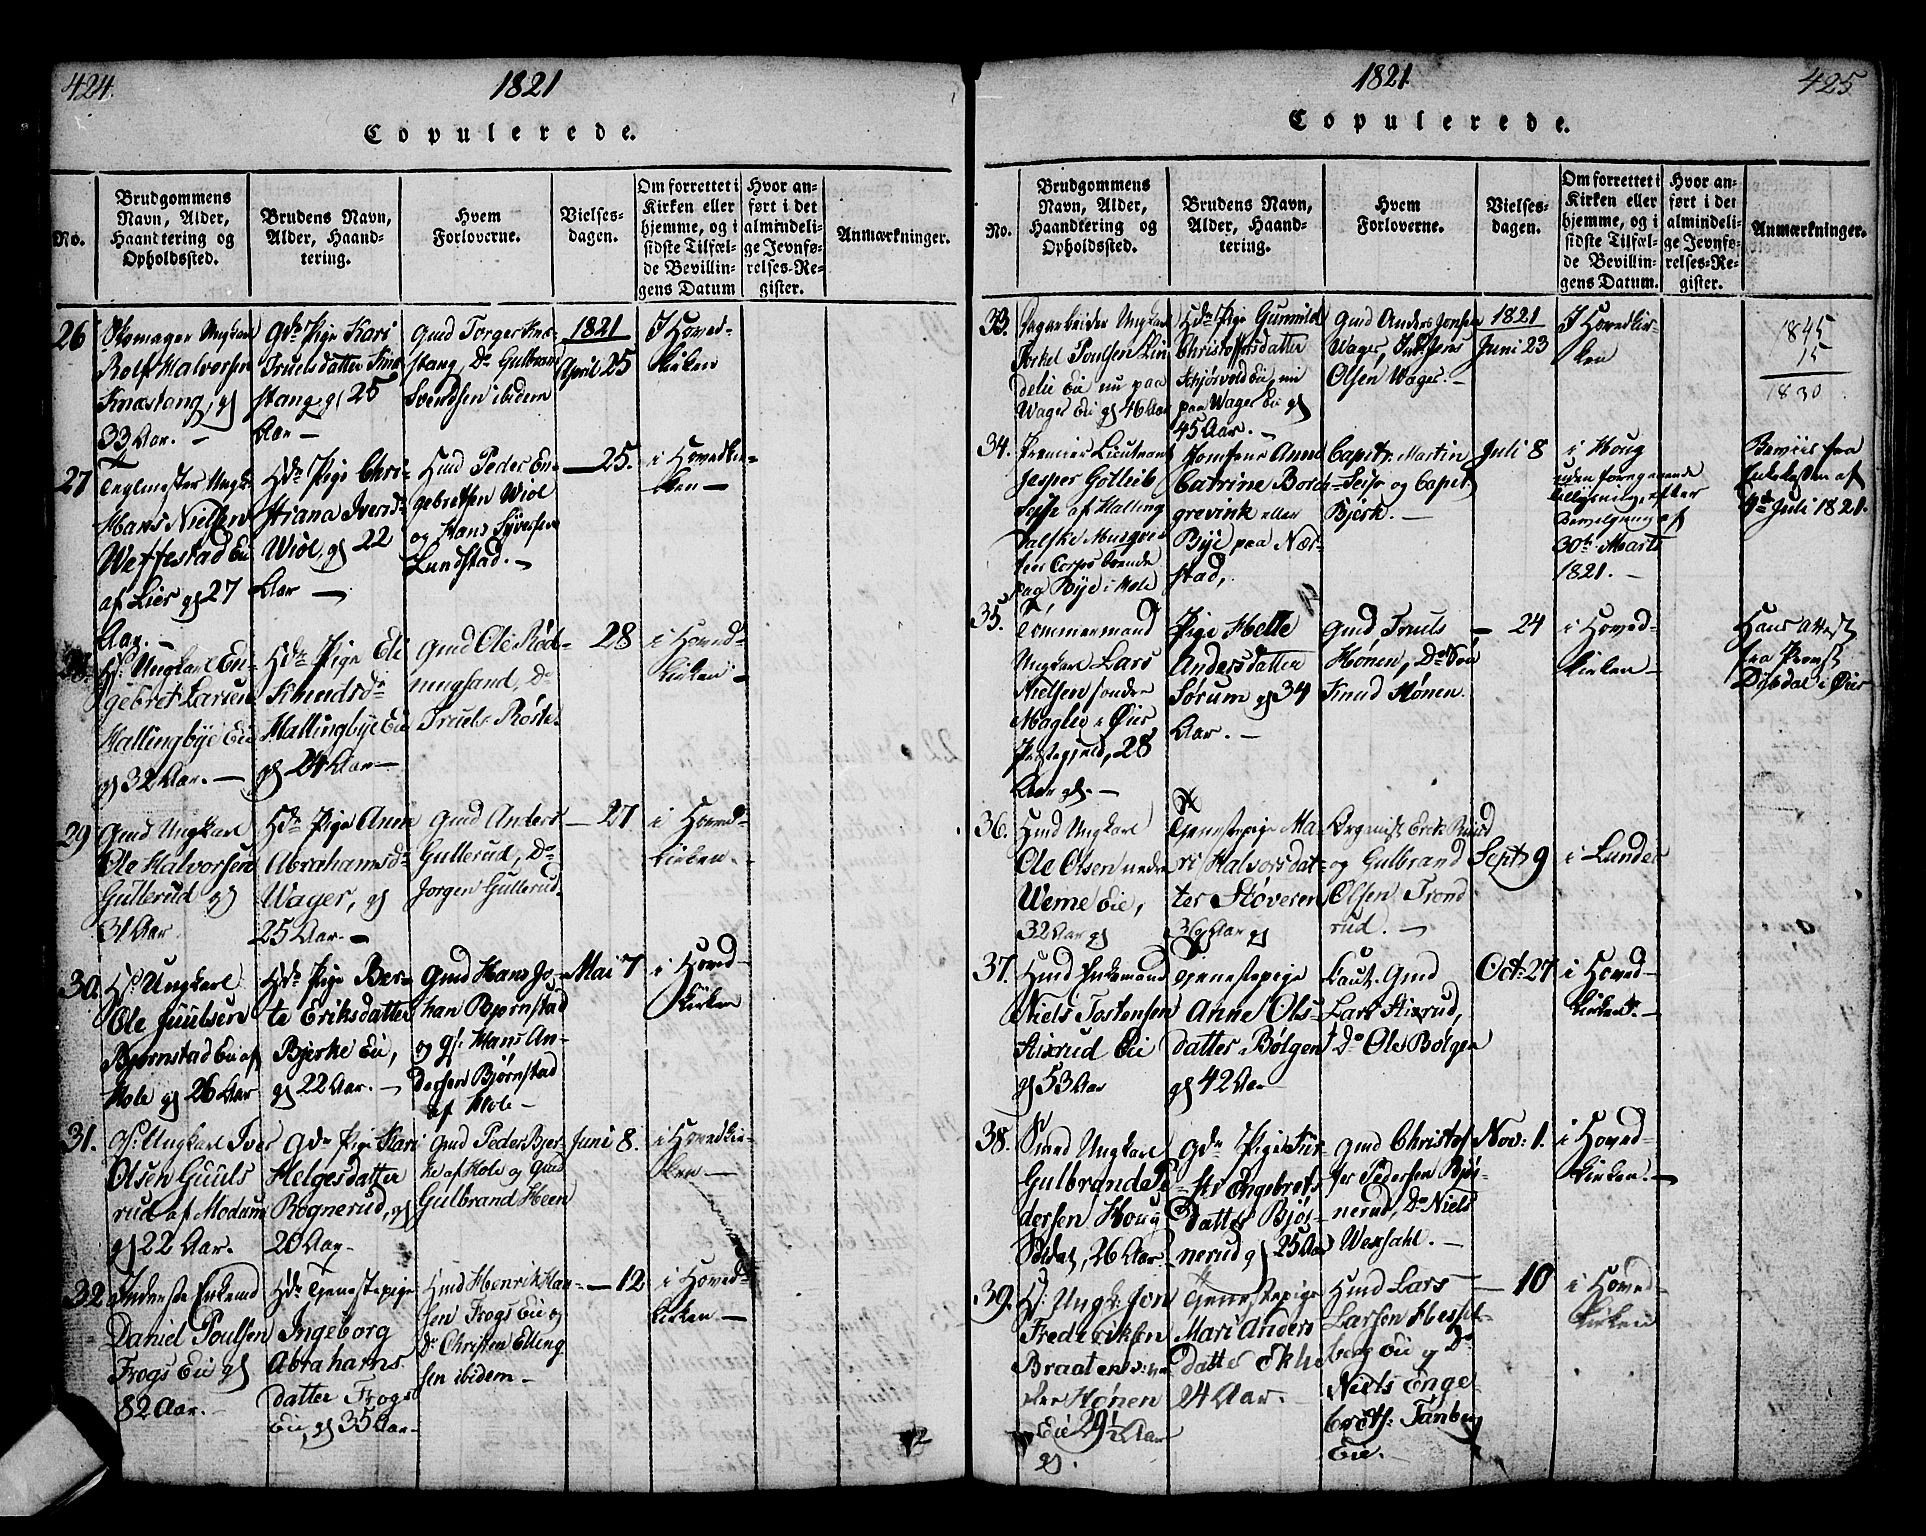 424.
1821
Copulerede.
No.
Brudgommens
Navn, Alder,
Haandtering og
Opholdssted.
Brudens Navn,
Alder, Haand-
tering.
Hvem
Forloverne.
Vielses-
dagen.
Om forrettet i
Kirken eller
hjemme, og i
sidste Tilfæl-
de Bevillin-
gens Datum
Hvor an-
ført i det
almindeli-
ge Jevnfø-
relses-Re-
gister.
Anmærkninger.
26
Skomager Ungkarl
Rolf Halvorsen
Knæstang, gl
33 Aar. —
Gdr Pige Kari
Truelsdatter Knæ-
stang gl 25
Aar —
Gmd Torger Knæ-
stang, Do Gulbrand
Svendsen ibidem
1821
April 25
I Hoved-
Kirken
27
Teglmester Ungk.
Hans Nielsen
Weffestad Eie
af Lier gl 27
Aar. —
Hdr Pige Chri-
stiana Ivers-
Wiol, gl 22
Aar —
Hmd Peder En-
gebretsen Wiol
og Hans Syversen
Lundstad. —
— 25.
i Hovedkir-
ken —
28.
Hs. Ungkarl En-
gebret Larsen
Hallingbye Eie
gl 32 Aar. —
Hdr Pige Eli
Knudsdr
Hallingbye Eie
gl 24 Aar —
Gmd Ole Rød-
ningsand, Do
Truels Røste.
28
i Hoved-
kirken —
29
Gmd Ungkarl
Ole Halvorsen
Gullerud gl
31 Aar
Hdr Pige Anne
Abrahamsdr
Wager, gl
25 Aar. —
Gmd Anders
Gullerud, Do
Jorgen Gullerud.
— 27
i Hoved-
kirken.
30.
Hs. Ungkarl
Ole Juulsen
Bjornstad Eie af
Hole gl 26 Aar
Hdr Pige Ber-
te Eriksdatter
Bjerke Eie,
gl 22 Aar. —
Gmd Hans Jo-
han Bjørnstad
og Gs. Hans An-
dersen Bjørnstad
af Hole —
Mai 7
i Hoved-
kirken
31.
Gs. Ungkarl Iver
Olsen Guuls
rud af Modum
gl 22 Aar.
Gdr Pige Kari
Helgesdatter
Rognerud, gl
20 Aar.
Gmd Peder Bjer-
ke af Hole og Gmd
Gulbrand Heen
Juni 8.
i Hovedkir-
ken —
32
Inderste Enkemd
Daniel Poulsen
Frogs Eie gl
82 Aar. —
Hdr Tjenestepige
Ingeborg
Abrahams
datter Frogs
Eie, gl 35 Aar
Hmd Henrik Han-
sen Frogs Eie og
Do Christen Elling
sen ibidem —
— 12
i Hoved-
kirken —
1821
425
Copulerede.
No.
Brudgommens
Navn, Alder,
Haandtering og
Opholdssted.
Brudens Navn,
Alder, Haand-
tering.
Hvem
Forloverne.
Vielses-
dagen.
Om forrettet i
Kirken eller
hjemme, og i
sidste Tilfæl-
de Bevillin-
gens Datum.
Hvor an-
ført i det
almindeli-
ge Jevnfø-
relses-Re-
gister.
Anmærkninger.
33.
Sagarbeider Ungkarl
Torkel Poulsen Lin
delie Eie nu paa
Wager Eie gl 46 Aar
Hdr Pige Gunnild
Christoffersdatter
Skjørvold Eie, nu
paa Wager Eie gl
45 Aar. —
Gmd Anders Jonsen
Wager, Inderstens
Olsen Wager. —
1821
Juni 23
I Hovedkir-
ken
1845
15
1830
34.
Premier Lieutnant
Jesper Gotlieb
Sejse af Halling
dalske Musquet
teir Corps boende
paa Bye i Hole
Jomfrue Anne
Catrine Borch
grevink eller
Bye paa Nær-
stad,
Capitn. Martin
Sejse og Capit
Bjerk. —
Juli 8
i Houg
uden foregaaende
Tillysning efter
Bevilgning af
30te Marts
1821. —
Beviis fra
Enkekassen af
4de Juli 1821.
35.
Tømmermand
Ungkarl Lars
Nielsen sondre
Maglie i Øier
Præstegjeld, 28
Aar gl. —
Pige Helle
Andersdatter
Sorum gl 34
Aar. —
Gmd Truls
Hønen, Do Søn
Knud Hønen.
— 24
i Hoved-
kirken —
Hans Attest
fra Provst
Dybdal i Øier
36.
Hmd Ungkarl
Ole Olsen nedre
Weme Eie,
32 Aar gl
Tjenestepige Ma-
ri Halvorsdat-
ter Støveren
36 Aar gl
Organist Erik Ruud
og Gulbrand
Olsen Trond
rud. —
Sept. 9
i Lunder
37.
Hmd Enkemand
Niels Tostensen
Stixrud Eie
gl 53 Aar
Tjenestepige
Anne Ols-
datter Bølgen
gl 42 Aar
Laut. Gmd
Lars Stixrud,
Do Ole Bølgen
Oct: 27
i Hoved-
kirken. —
38.
Smed Ungkarl
Gulbrand Pe
dersen Houg
Soldat, 26 Aar
Gdr Pige Tur-
ste Engebrets-
datter Bjør-
nerud gl 25 Aar
Gmd Christof-
fer Pedersen Bjør-
nerud, Do Niels
Wexsahl. —
Nov: 1.
i Hoved-
kirken. —
39.
Hs. Ungk. Jon
Frederiksen
Braaten un-
der Hønen
Eie 29½ Aar
gl.
Tjenestepige
Mari Anders
datter Ekle
24 Aar. —
Hmd Lars
Larsen Hessel-
berg Eie og Do
Niels Enge
bretsn Tanberg
Eie. —
— 10
i Hoved-
kirken